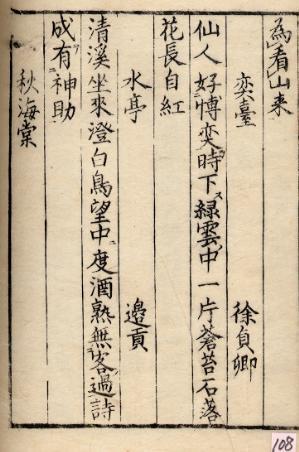 為看山来
奕臺　徐貞卿
仙人好博奕時下緑雲中一片蒼苔石落
花長自紅
水亭　邉貢
清溪坐來澄白鳥望中度酒熟無客過詩
成有神助
秋海棠
108